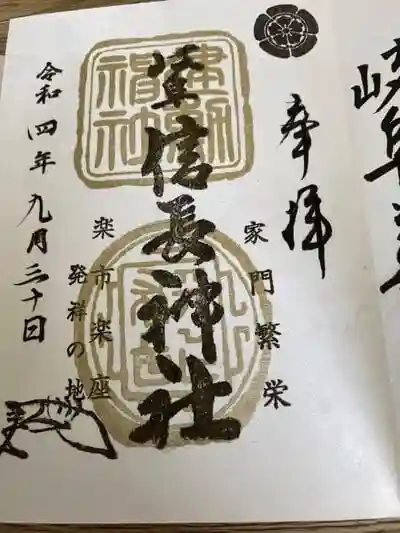 岐阜
奉拝
家門繁栄
建勲
神社
信長神社
楽市楽座
発祥の地
令和四年九月三十日